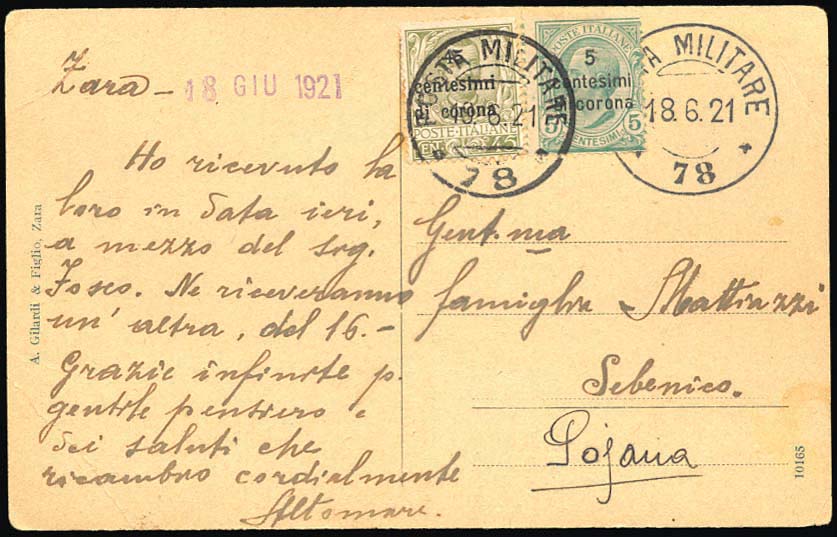 Zara - 18 GIU 1921
Ho ricevuto la
loro in data ieri,
a mezzo del sig.
Fosco. Ne riceveranno
un' altra, del 16.-
Grazie infinite p.
gentile pensiero e
dei saluti che
ricambio cordialmente
Altomare.
A. Gilardi & Figlio, Zara
centesimi
di corona
POSTE·ITALIANE
CENT. 45
POSTA MILITARE
18.6.21
78
POSTE ITALIANE
5
centesimi
di corona
5 5
CENTESIMI
POSTA MILITARE
18.6.21
78
Gent.ma
famiglia Mattiazzi
Sebenico.
Pojana
10165